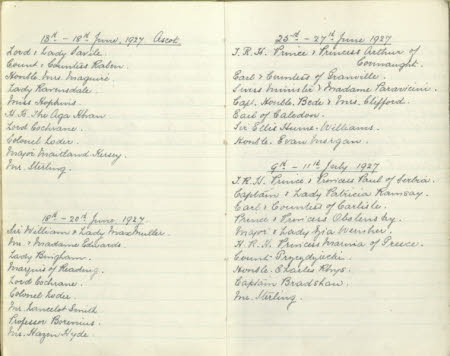 13th – 18th June, 1927 Ascot.
Lord & Lady Savile.
Count & Countess Raben.
Honble Mrs Maguire.
Lady Ravensdale.
Miss Hopkins.
H.H. The Aga Khan
Lord Cochrane.
Colonel Loder.
Major Maitland Kersey.
Mr. Sterling.
18th – 20th June, 1927.
Sir William & Lady Max Muller.
Mr. & Madame Edwards.
Lady Bingham.
Marquis of Reading.
Lord Cochrane.
Colonel Loder.
Mr Lancelot Smith
Professor Borenius.
Mrs. Hazen Hyde.
25th – 27th June 1927
T.R.H. Prince & Princess Arthur of
Connaught.
Earl & Countess of Granville.
Swiss Minister & Madame Paravicini.
Capt. Honble. Bede & Mrs. Clifford.
Earl of Caledon.
Sir Ellis Hume-Williams.
Honble. Evan Morgan.
9th – 11th July 1927
T.R.H. Prince & Princess Paul of Serbia.
Captain & Lady Patricia Ramsay.
Earl & Countess of Carlisle.
Prince & Princess Obolensky.
Major & Lady Zia Wernher.
H.R.H. Princess Marina of Greece.
Count
Honble. Charles Rhys.
Captain Bradshaw.
Mr. Sterling.